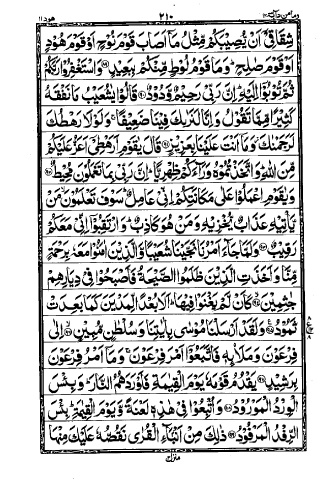 ومامن دآبة ١٢ ٢١٠ هود ١١
شِقَاقِيْٓ اَنْ يُّصِيْبَكُمْ مِّثْلُ مَاۤ اَصَابَ قَوْمَ نُوْحٍ اَوْ قَوْمَ هُوْدٍ
اَوْ قَوْمَ صٰلِحٍ ؕ وَمَا قَوْمُ لُوْطٍ مِّنْكُمْ بِبَعِيْدٍ ۝۸۹ وَاسْتَغْفِرُوْا رَبَّكُمْ
ثُمَّ تُوْبُوْۤا اِلَيْهِ ؕ اِنَّ رَبِّيْ رَحِيْمٌ وَّدُوْدٌ ۝۹۰ قَالُوْا يٰشُعَيْبُ مَا نَفْقَهُ
كَثِيْرًا مِّمَّا تَقُوْلُ وَاِنَّا لَنَرٰىكَ فِيْنَا ضَعِيْفًا ۚ وَلَوْلَا رَهْطُكَ
لَرَجَمْنٰكَ ۫ وَمَاۤ اَنْتَ عَلَيْنَا بِعَزِيْزٍ ۝۹۱ قَالَ يٰقَوْمِ اَرَهْطِيْۤ اَعَزُّ عَلَيْكُمْ
مِّنَ اللّٰهِ ؕ وَاتَّخَذْتُمُوْهُ وَرَآءَكُمْ ظِهْرِيًّا ؕ اِنَّ رَبِّيْ بِمَا تَعْمَلُوْنَ مُحِيْطٌ ۝۹۲
وَيٰقَوْمِ اعْمَلُوْا عَلٰى مَكَانَتِكُمْ اِنِّيْ عَامِلٌ ؕ سَوْفَ تَعْلَمُوْنَ ۙ مَنْ
يَّاْتِيْهِ عَذَابٌ يُّخْزِيْهِ وَمَنْ هُوَ كَاذِبٌ ؕ وَارْتَقِبُوْۤا اِنِّيْ مَعَكُمْ
رَقِيْبٌ ۝۹۳ وَلَمَّا جَآءَ اَمْرُنَا نَجَّيْنَا شُعَيْبًا وَّالَّذِيْنَ اٰمَنُوْا مَعَهٗ بِرَحْمَةٍ
مِّنَّا وَاَخَذَتِ الَّذِيْنَ ظَلَمُوا الصَّيْحَةُ فَاَصْبَحُوْا فِيْ دِيَارِهِمْ
جٰثِمِيْنَ ۝۹۴ كَاَنْ لَّمْ يَغْنَوْا فِيْهَا ؕ اَلَا بُعْدًا لِّمَدْيَنَ كَمَا بَعِدَتْ
ثَمُوْدُ ۝۹۵ وَلَقَدْ اَرْسَلْنَا مُوْسٰى بِاٰيٰتِنَا وَسُلْطٰنٍ مُّبِيْنٍ ۝۹۶ اِلٰى
فِرْعَوْنَ وَمَلَا۟ئِهٖ فَاتَّبَعُوْۤا اَمْرَ فِرْعَوْنَ ۚ وَمَاۤ اَمْرُ فِرْعَوْنَ
بِرَشِيْدٍ ۝۹۷ يَقْدُمُ قَوْمَهٗ يَوْمَ الْقِيٰمَةِ فَاَوْرَدَهُمُ النَّارَ ؕ وَبِئْسَ
الْوِرْدُ الْمَوْرُوْدُ ۝۹۸ وَاُتْبِعُوْا فِيْ هٰذِهٖ لَعْنَةً وَّيَوْمَ الْقِيٰمَةِ ؕ بِئْسَ
الرِّفْدُ الْمَرْفُوْدُ ۝۹۹ ذٰلِكَ مِنْ اَنْۢبَآءِ الْقُرٰى نَقُصُّهٗ عَلَيْكَ مِنْهَا
منزل ٣